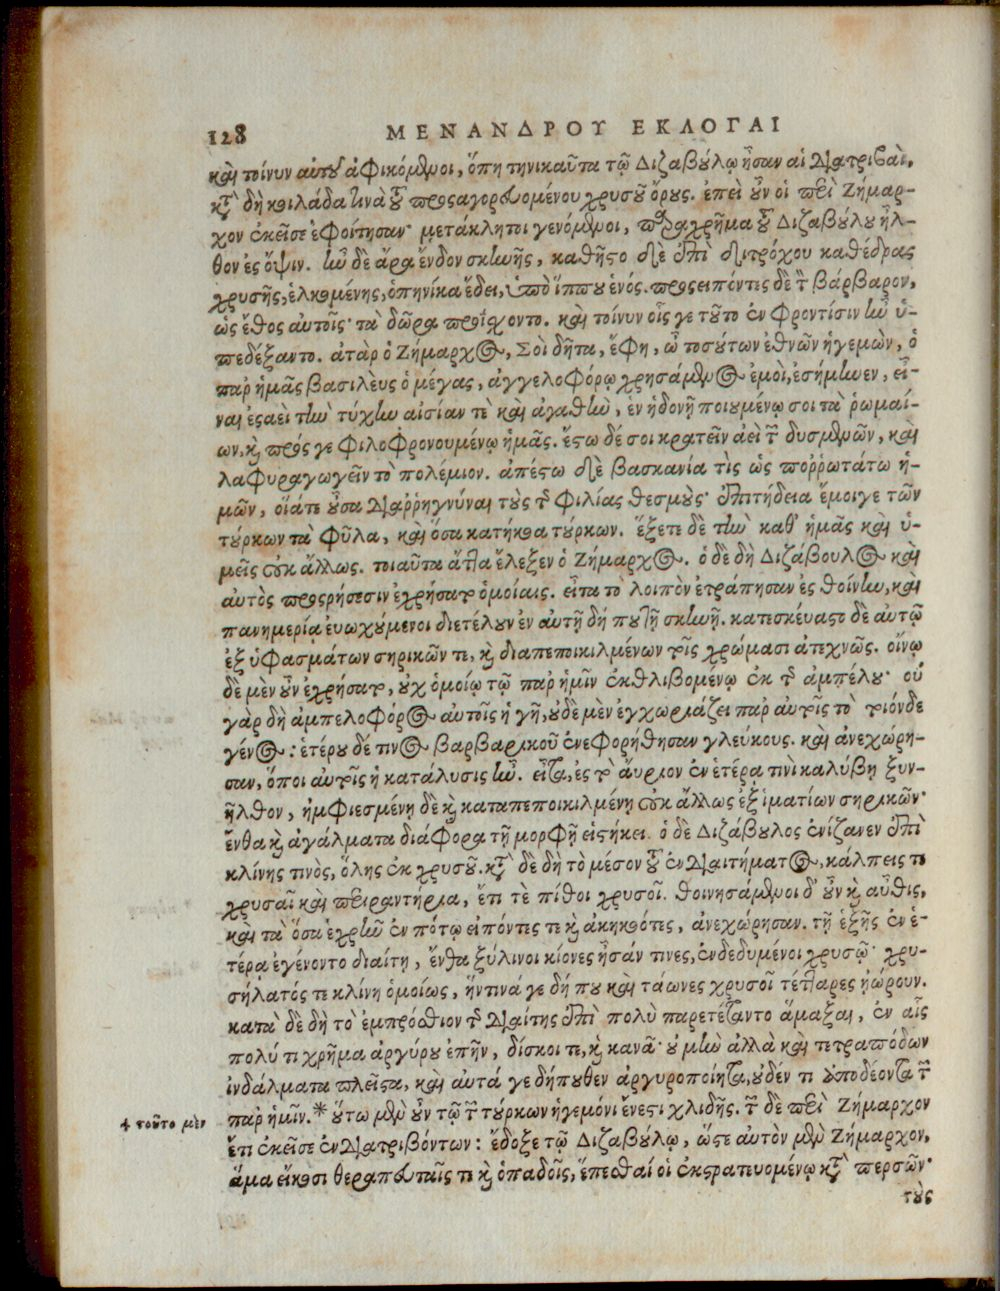 128 ΜΕΝΑΝΔΡΟΥ ΕΚΛΟΓΑΙ
καὶ τοίνυν αὐτοῦ ἀφικόμενοι, ὅπη τηνικαῦτα τῷ Διζαβούλῳ ἦσαν αἱ διατριβαὶ,
κατὰ δὴ κοιλάδα τινὰ τοῦ προσαγορευομένου χρυσοῦ ὄρους. ἐπεὶ οὖν οἱ περὶ Ζήμαρ-
χον ἐκεῖσε ἐφοίτησαν· μετάκλητοι γενόμενοι, παραχρῆμα τοῦ Διζαβούλου ἦλ-
θον ἐς ὄψιν. ἦν δὲ ἄρα ἔνδον σκηνῆς, καθῆστο δὲ ἐπὶ διτρόχου καθέδρας
χρυσῆς, ἑλκομένης, ὁπηνίκα ἔδει, ὑπὸ ἵππου ἑνός. προσειπόντες δὲ τὸν βάρβαρον,
ὡς ἔθος αὐτοῖς· τὰ δῶρα προΐσχοντο. καὶ τοίνυν οἷς γε τοῦτο ἐν φροντίσιν ἦν ὑ-
πεδέξαντο. ἀτὰρ ὁ Ζήμαρχος, Σοὶ δῆτα, ἔφη, ὦ τοσούτων ἐθνῶν ἡγεμὼν, ὁ
παρ ἡμᾶς βασιλεὺς ὁ μέγας, ἀγγελοφόρῳ χρησάμενος ἐμοὶ, ἐσήμηνεν, εἶ-
ναι ἐσαεὶ τὴν τύχην αἰσίαν τὲ καὶ ἀγαθὴν, εν ἡδονῇ ποιουμένῳ σοι τὰ ῥωμαί-
ων, καὶ πρός γε φιλοφρονουμένῳ ἡμᾶς. ἔστω δέ σοι κρατεῖν ἀεὶ τῶν δυσμενῶν, καὶ
λαφυραγωγεῖν τὸ πολέμιον. ἀπέστω δὲ βασκανία τὶς ὡς πορρωτάτω ἡ-
μῶν, οἵάτε οὖσα διαρρηγνύναι τοὺς τῆς φιλίας θεσμούς· ἐπιτήδεια ἔμοιγε τῶν
τούρκων τὰ φῦλα, καὶ ὅσα κατήκοα τούρκων. ἕξετε δὲ τὴν καθ' ἡμᾶς καὶ ὑ-
μεῖς οὐκ ἄλλως. τοιαῦτα ἄττα ἔλεξεν ὁ Ζήμαρχος. ὁ δὲ δὴ Διζάβουλος καὶ
αὐτὸς προσρήσεσιν ἐχρήσατο ὁμοίαις. εἶτα τὸ λοιπὸν ἐτράπησαν ἐς θοίνην, καὶ
πανημερίᾳ ἐυωχούμενοι διετέλουν ἐν αὐτῇ δή που τῇ σκηνῇ. κατεσκέυαστο δὲ αὐτῷ
ἐξ ὑφασμάτων σηρικῶν τε, καὶ διαπεποικιλμένων τοῖς χρώμασι ἀτεχνῶς. οἴνῳ
δὲ μὲν οὖν ἐχρήσατο, οὐχ ὁμοίῳ τῷ παρ ἡμῖν ἐκθλιβομένῳ ἐκ τῆς ἀμπέλου· οὐ
γὰρ δὴ ἀμπελοφόρος αὐτοῖς ἡ γῆ, οὐδὲ μὲν ἐγχωριάζει παρ αὐτοῖς τὸ τοιόνδε
γένος: ἑτέρου δέ τινος βαρβαρικοῦ ἐνεφορήθησαν γλεύκους. καὶ ἀνεχώρη-
σαν, ὅποι αὐτοῖς ἡ κατάλυσις ἦν. εἶτα, ἐς τὸ ἄυριον ἐν ἑτέρᾳ τινὶ καλύβῃ ξυν-
ῆλθον, ἠμφιεσμένῃ δὲ καὶ καταπεποικιλμένῃ οὐκ ἄλλως ἐξ ἱματίων σηρικῶν·
ἔνθα καὶ ἀγάλματα διάφορα τῇ μορφῇ εἱστήκει. ὁ δὲ Διζάβουλος ἐνίζανεν ἐπὶ
κλίνης τινὸς, ὅλης ἐκ χρυσοῦ. κατὰ δὲ δὴ τὸ μέσον τοῦ ἐνδιαιτήματος, κάλπεις τε
χρυσαῖ καὶ περιραντήρια, ἔτι τὲ πίθοι χρυσοῖ. θοινησάμενοι δ' οὖν καὶ αὖθις,
καὶ τὰ ὅσα ἐχρῆν ἐν πότῳ εἰπόντες τε καὶ ἀκηκοότες, ἀνεχώρησαν. τῇ ἑξῆς ἐν ἑ-
τέρᾳ ἐγένοντο διαίτῃ, ἔνθα ξύλινοι κίονες ἦσάν τινες, ἐνδεδυμένοι χρυσῷ· χρυ-
σήλατός τε κλίνη ὁμοίως, ἥντινά γε δή που καὶ τάωνες χρυσοῖ τέτταρες ᾐώρουν.
κατὰ δὲ δὴ τὸ ἐμπρόσθιον τῆς διαίτης ἐπὶ πολὺ παρετέταντο ἅμαξαι, ἐν αἷς
πολύ τι χρῆμα ἀργύρου ἐπῆν, δίσκοι τε, καὶ κανᾶ· οὐ μὴν ἀλλὰ καὶ τετραπόδων
ἰνδάλματα πλεῖστα, καὶ αὐτά γε δήπουθεν ἀργυροποίητα, οὐδέν τι ὑποδέοντα τῶν
παρ ἡμῖν.* οὕτω μὲν οὖν τῷ τῶν τούρκων ἡγεμόνι ἔνεστι χλιδῆς. τῶν δὲ περὶ Ζήμαρχον
+ τοῦτο μὲν
ἔτι ἐκεῖσε ἐνδιατριβόντων: ἔδοξε τῷ Διζαβούλῳ, ὥστε αὐτὸν μὲν Ζήμαρχον,
ἅμα εἴκοσι θεραπευταῖς τε καὶ ὀπαδοῖς, ἕπεσθαί οἱ ἐκστρατευομένῳ κατὰ περσῶν·
τοὺς